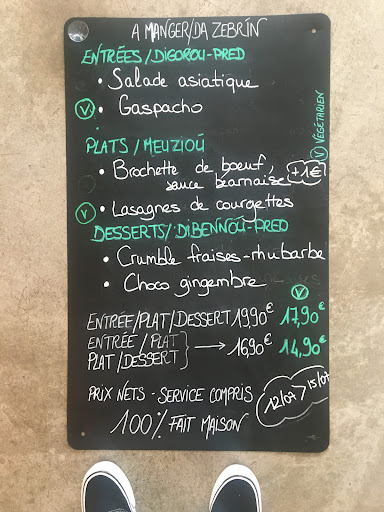 A MANGER/DA ZEBRIÑ
ENTRÉES/DIGOROU-PRED
• Salade asiatique
Ⓥ • Gaspacho
Ⓥ VÉGÉTARIEN
PLATS / MEUZIOÙ
• Brochette de boeuf,
sauce béarnaise +1€
Ⓥ • Lasagnes de courgettes
DESSERTS/DIBENNOU-PRED
• Crumble fraises-rhubarbe
• Choco gingembre
Ⓥ
ENTRÉE/PLAT/DESSERT 19,90€ 17,90€
ENTRÉE / PLAT
PLAT/DESSERT } → 16,90€ 14,90€
PRIX NETS - SERVICE COMPRIS
12/07 > 15/07
100% FAIT MAISON